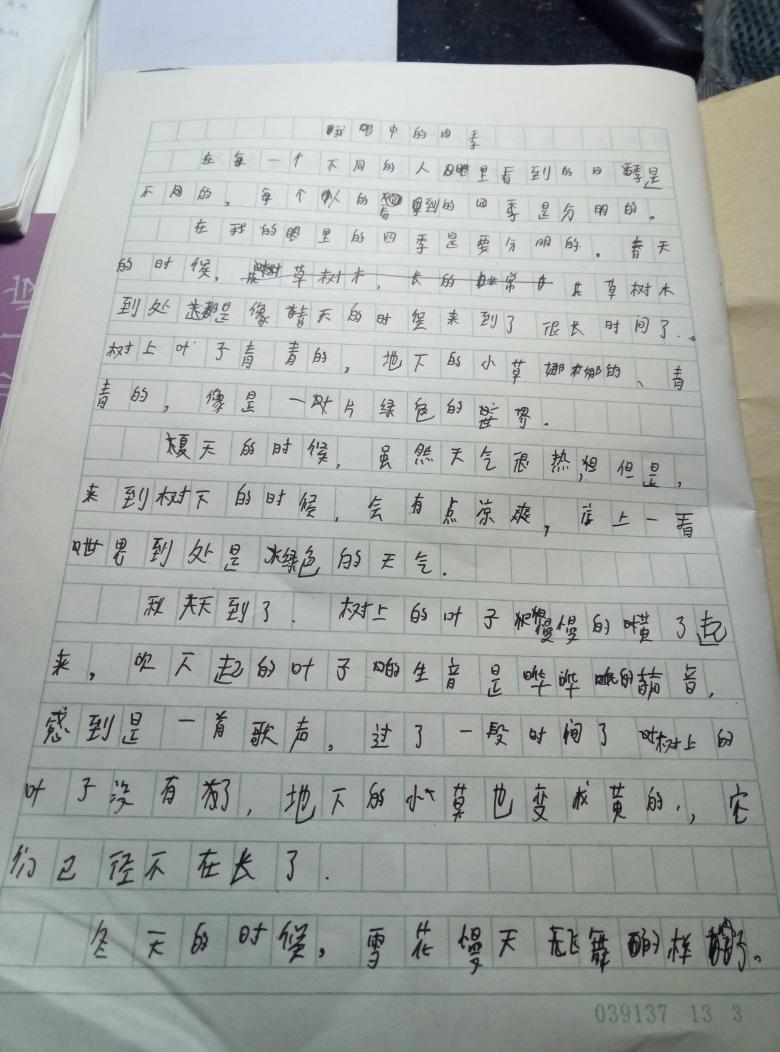 我眼中的四季
在每一个不同的人眼里看到的四季是
不同的，每个人的看到的四季是分明的。
在我的眼里的四季是要分明的。春天
的时候，草树木，长的常 其草树木
到处都是像春天的时候来到了很长时间了。
树上叶子青青的，地下的小草娜娜的、青
青的，像是一片绿色的世界.
夏天的时候，虽然天气很热,但但是,
来到树下的时候，会有点凉爽，往上一看
世界到处是绿色的天气.
秋天到了.树上的叶子慢慢的横了起
来，吹下起的叶子的生音是哗哗的声音,
感到是一首歌声，过了一段时间了树上的
叶子没有了，地下的小草也变成黄的，它
们已径不在长了.
冬天的时候，雪花慢天飞舞的样了。
039137 13 3